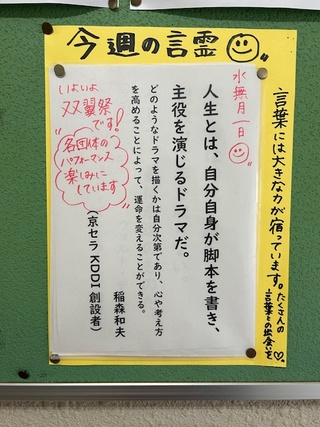 今週の言霊
言葉には大きな力が宿っています。たくさんの
言葉との出会いを♡
水無月一日
人生とは、自分自身が脚本を書き、
主役を演じるドラマだ。
どのようなドラマを描くかは自分次第であり、心や考え方
を高めることによって、運命を変えることができる。
稲森和夫
(京セラ KDDI 創設者)
いよいよ
双翼祭
です!
各団体の
パフォーマンス
楽しみに
しています